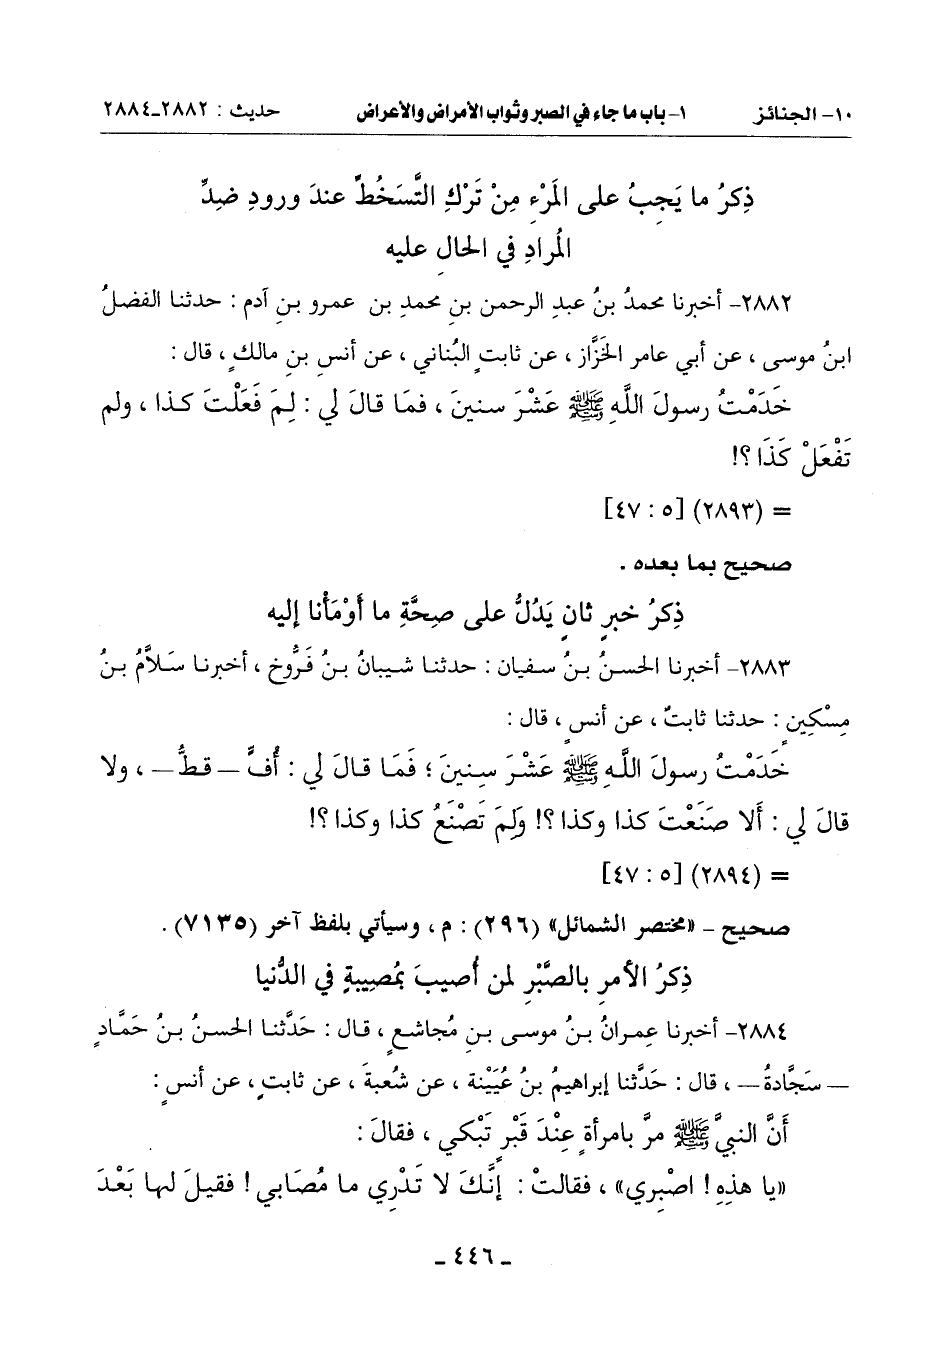 ١٠- الجنائز ١- باب ما جاء في الصبر وثواب الأمراض والأعراض حديث : ٢٨٨٢-٢٨٨٤
ذِكرُ ما يَجِبُ على المَرْءِ مِنْ تَرْكِ التَّسَخُّطِ عندَ ورودِ ضِدِّ
المُرادِ في الحالِ عليه
٢٨٨٢- أخبرنا محمدُ بنُ عبدِ الرحمنِ بنِ محمدِ بنِ عمرو بنِ آدم : حدثنا الفضلُ
ابنُ موسى ، عن أبي عامر الخَزَّاز ، عن ثابتٍ البُناني ، عن أنسِ بنِ مالكٍ ، قال :
خَدَمْتُ رسولَ اللَّهِ ﷺ عَشْرَ سنينَ ، فمَا قالَ لي : لِمَ فَعَلْتَ كذا ، ولم
تَفْعَلْ كَذَا ؟!
= (٢٨٩٣) [٥ : ٤٧]
صحيح بما بعده .
ذِكرُ خبرٍ ثانٍ يَدُلُّ على صِحَّةِ ما أَوْمَأْنا إليه
٢٨٨٣- أخبرنا الحسنُ بنُ سفيان : حدثنا شيبانُ بنُ فَرُّوخ ، أخبرنا سَلاَّمُ بنُ
مِسْكِينٍ : حدثنا ثابتٌ ، عن أنسٍ ، قال :
خَدَمْتُ رسولَ اللَّهِ ﷺ عَشْرَ سِنِينَ ؛ فَمَا قالَ لي : أُفٍّ – قطُّ – ، ولا
قالَ لي : أَلا صَنَعْتَ كذا وكذا ؟! ولِمَ تَصْنَعُ كذا وكذا ؟!
= (٢٨٩٤) [٥ : ٤٧]
صحيح – «مختصر الشمائل» (٢٩٦) : م ، وسيأتي بلفظ آخر (٧١٣٥) .
ذِكرُ الأمرِ بالصَّبْرِ لمن أُصيبَ بمُصِيبةٍ في الدُّنيا
٢٨٨٤- أخبرنا عِمرانُ بنُ موسى بنِ مُجاشعٍ ، قال : حَدَّثنا الحسنُ بنُ حَمَّادٍ
– سَجَّادةُ – ، قال : حَدَّثنا إبراهيمُ بنُ عُيَيْنة ، عن شُعبةَ ، عن ثابتٍ ، عن أنسٍ :
أَنَّ النبيَّ ﷺ مرَّ بامرأةٍ عِنْدَ قَبْرٍ تَبْكي ، فقالَ :
«يا هذِهِ ! اصْبِري» ، فقالتْ : إنَّكَ لا تَدْرِي ما مُصَابي ! فقيلَ لها بَعْدَ
- ٤٤٦ -